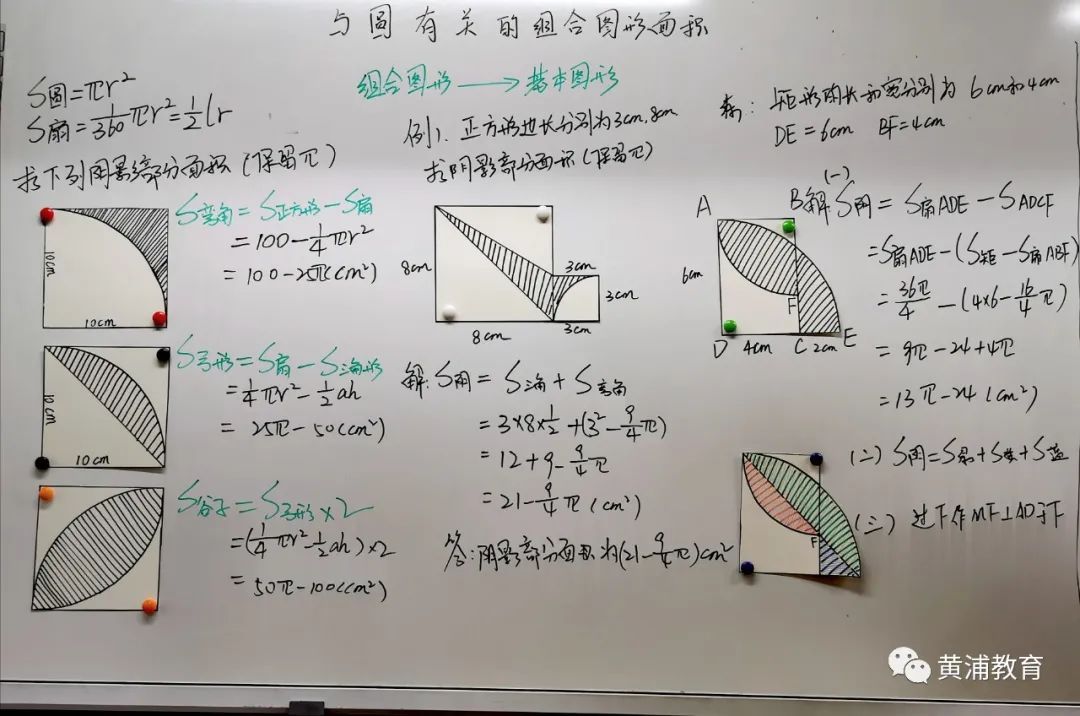 与圆有关的组合图形面积
S圆=πr²
S扇=1/360πr²=1/2lr
求下列阴影部分面积(保留π)
10cm
10cm
S弯角=S正方形-S扇
=100-1/4πr²
=100-25π(cm²)
10cm
10cm
S弓形=S扇-S三角形
=1/4πr²-1/2ah
=25π-50(cm²)
S谷子=S弓形×2
=(1/4πr²-1/2ah)×2
=50π-100(cm²)
组合图形→基本图形
例1、正方形边长分别为3cm,8cm
求阴影部分面积(保留π)
8cm
3cm
3cm
8cm
3cm
解:S阴=S三角+S弯角
=3×8×1/2+(3²-9/4π)
=12+9-9/4π
=21-9/4π(cm²)
答:阴影部分面积为(21-9/4π)cm²
矩形的长和宽分别为6cm和4cm
DE=6cm BF=4cm
A
B
6cm
F
D
4cm
C
2cm
E
(一)
解 S阴=S扇ADE-SADCF
=S扇ADE-(S矩-S扇ABF)
=36π/4-(4×6-16/4π)
=9π-24+4π
=13π-24(cm²)
F
(二)S阴=S绿+S+S蓝
(三)过F作MF⊥AD于F
黄浦教育